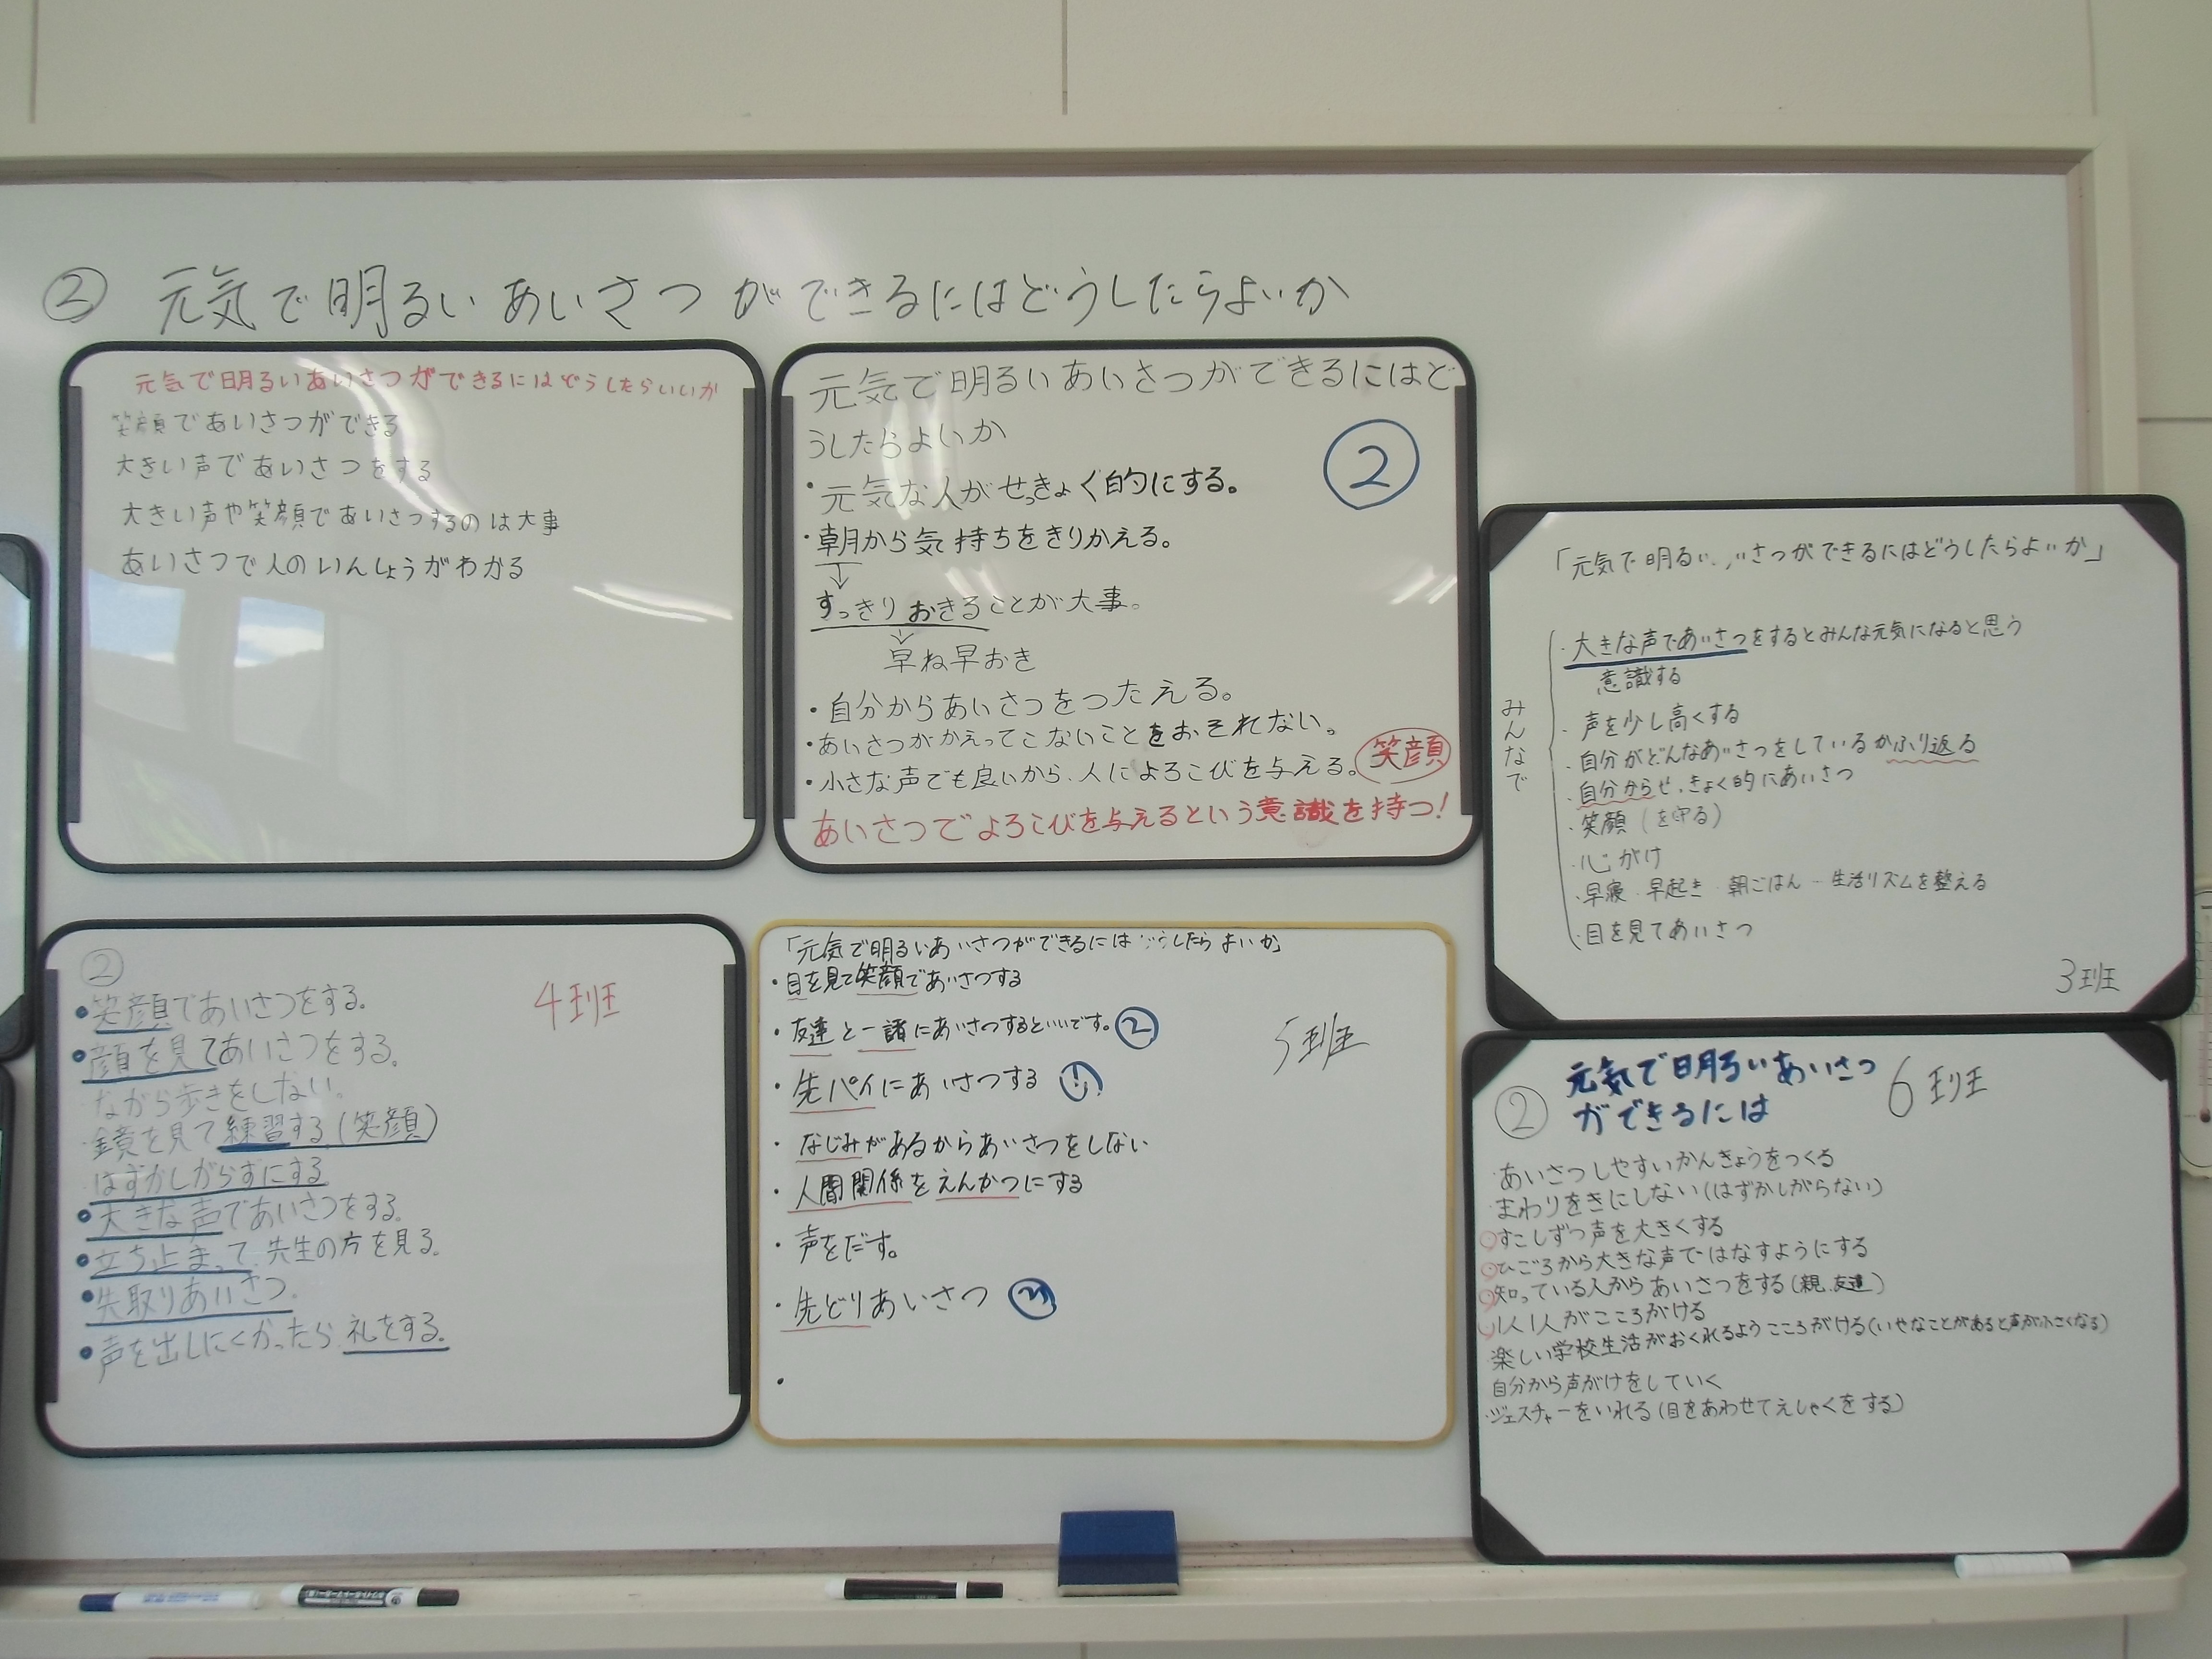 ② 元気で明るいあいさつができるにはどうしたらよいか
元気で明るいあいさつができるにはどうしたらいいか
笑顔であいさつができる
大きい声であいさつをする
大きい声や笑顔であいさつするのは大事
あいさつで人のいんしょうがわかる
元気で明るいあいさつができるにはど
うしたらよいか
②
・元気な人がせっきょく的にする。
・朝から気持ちをきりかえる。
すっきりおきることが大事。
早ね早おき
・自分からあいさつをつたえる。
・あいさつがかえってこないことをおそれない。
・小さな声でも良いから、人によろこびを与える。
笑顔
あいさつでよろこびを与えるという意識を持つ!
「元気で明るい さつができるにはどうしたらよいか」
みんなで
・大きな声であいさつをするとみんな元気になると思う
意識する
・声を少し高くする
・自分がどんなあいさつをしているかふり返る
・自分からせっきょく的にあいさつ
・笑顔(を守る)
・心がけ
・早寝・早起き・朝ごはん – 生活リズムを整える
・目を見てあいさつ
3班
②
4班
・笑顔であいさつをする。
・顔を見てあいさつをする。
・ながら歩きをしない。
・鏡を見て練習する(笑顔)
・はずかしがらずにする
・大きな声であいさつをする。
・立ち止まって、先生の方を見る。
・先取りあいさつ。
・声を出しにくかったら、礼をする。
「元気で明るいあいさつができるには どうしたらよいか」
・目を見て笑顔であいさつする
・友達と一諸にあいさつするといいです。②
5班
・先パイにあいさつする ①
・なじみがあるからあいさつをしない
・人間関係をえんかつにする
・声をだす。
・先どりあいさつ
・
② 元気で明るいあいさつ
ができるには
6班
・あいさつしやすいかんきょうをつくる
・まわりをきにしない(はずかしがらない)
すこしずつ声を大きくする
ひごろから大きな声ではなすようにする
知っている人からあいさつをする(親、友達)
1人1人がこころがける
楽しい学校生活がおくれるようこころがける(いやなことがあると声が小さくなる)
自分から声がけをしていく
・ジェスチャーをいれる(目をあわせてえしゃくをする)